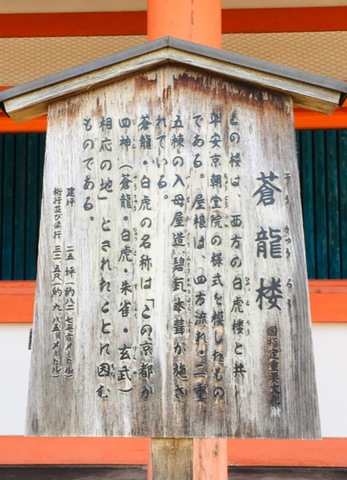 蒼龍楼
そうりゅうろう
国指定重要文化財
この楼は、西方の白虎楼と共に
平安京朝堂院の様式を模したもの
である。屋根は、四方流れ、二重
五棟の入母屋造、碧瓦本葺が施さ
れている。
蒼龍・白虎の名称は「この京都が
四神（蒼龍・白虎・朱雀・玄武）
相応の地」とされたことに因む
ものである。
建坪
二五坪
桁行並び梁行
三二・五尺